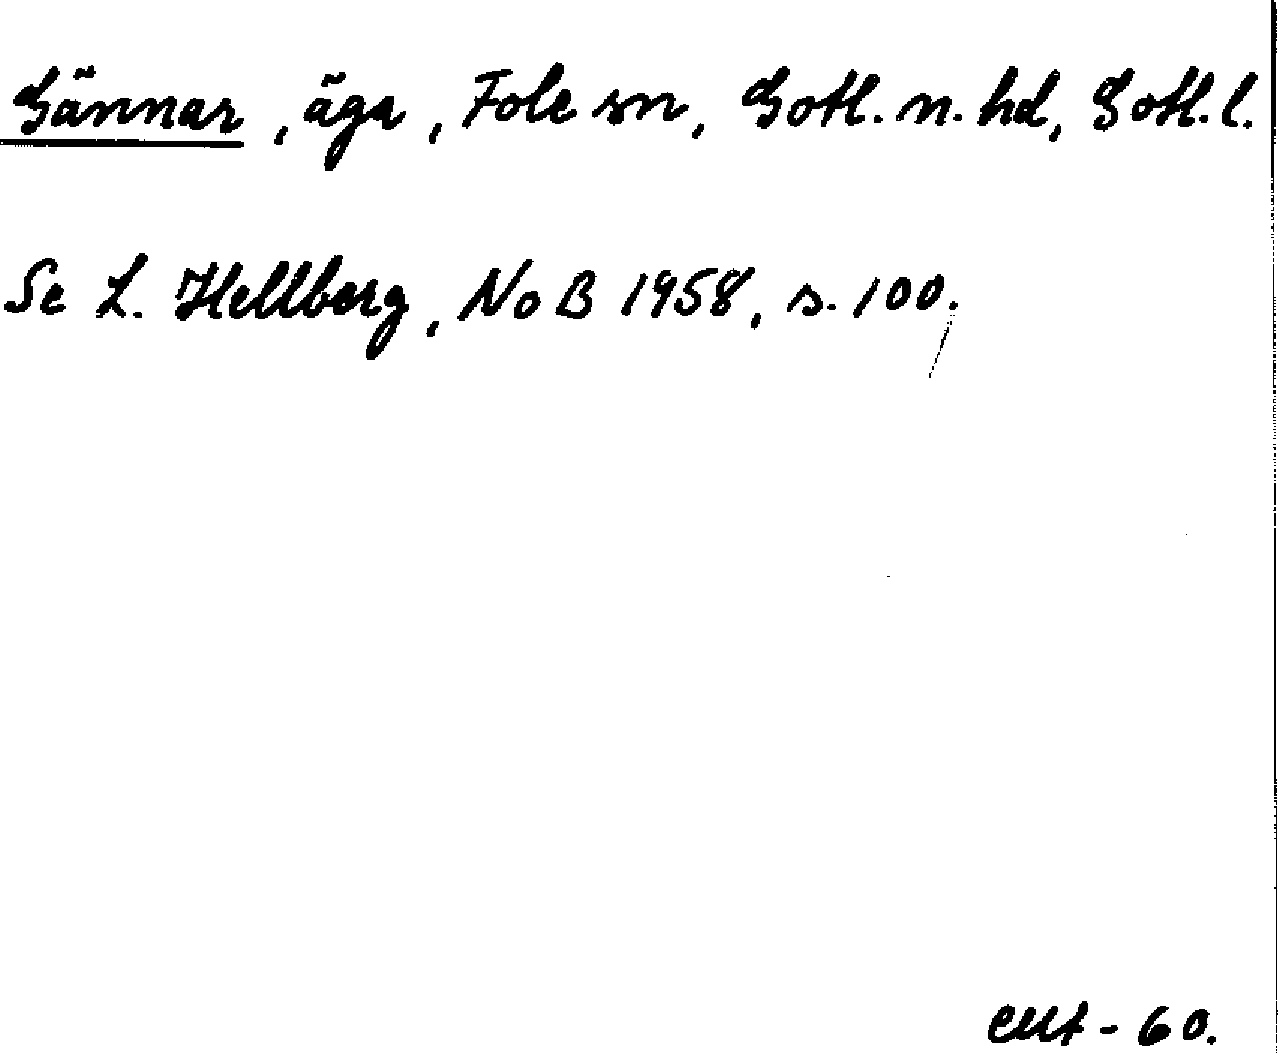 Gännar, äga, Fole sn, Gotl. n. hd, Gotl. l.
Se L. Hellberg, NoB 1958, s. 100.
- 60.